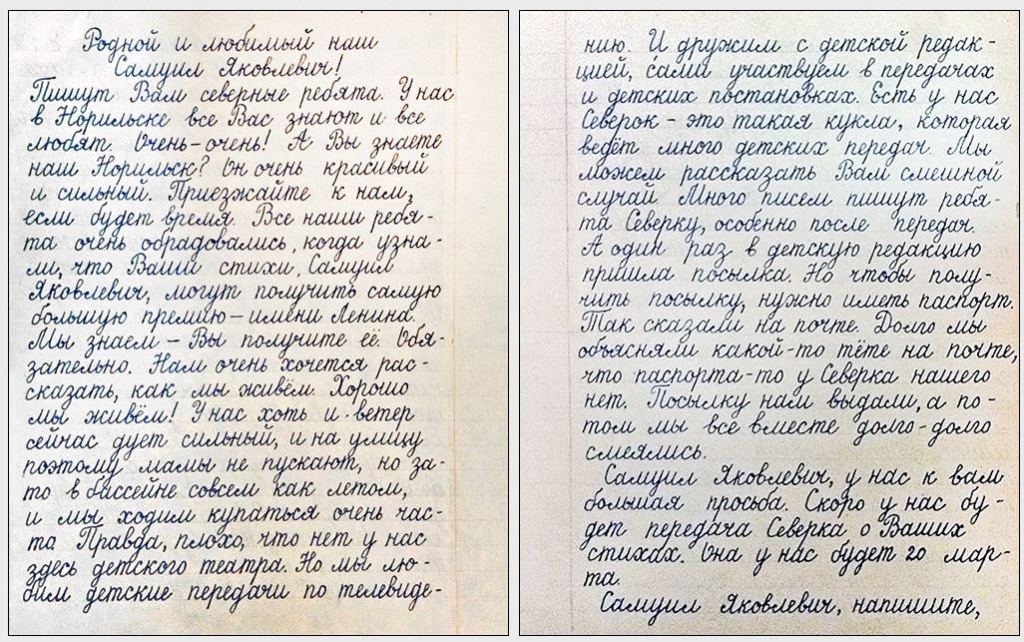 Родной и любимый наш
Самуил Яковлевич!
Пишут Вам северные ребята. У нас
в Норильске все Вас знают и все
любят. Очень-очень! А Вы знаете
наш Норильск? Он очень красивый
и сильный. Приезжайте к нам,
если будет время. Все наши ребя-
та очень обрадовались, когда узна-
ли, что Ваши стихи, Самуил
Яковлевич, могут получить самую
большую премию – имени Ленина.
Мы знаем – Вы получите её. Обя-
зательно. Нам очень хочется рас-
сказать, как мы живём. Хорошо
мы живём! У нас хоть и ветер
сейчас дует сильный, и на улицу
поэтому мамы не пускают, но за-
то в бассейне совсем как летом,
и мы ходим купаться очень час-
то. Правда, плохо, что нет у нас
здесь детского театра. Но мы лю-
бим детские передачи по телевиде-
нию. И дружим с детской редак-
цией, сами участвуем в передачах
и детских постановках. Есть у нас
Северок – это такая кукла, которая
ведёт много детских передач. Мы
можем рассказать Вам смешной
случай. Много писем пишут ребя-
та Северку, особенно после передач.
А один раз в детскую редакцию
пришла посылка. Но чтобы полу-
чить посылку, нужно иметь паспорт.
Так сказали на почте. Долго мы
объясняли какой-то тёте на почте,
что паспорта-то у Северка нашего
нет. Посылку нам выдали, а по-
том мы все вместе долго-долго
смеялись.
Самуил Яковлевич, у нас к вам
большая просьба. Скоро у нас бу-
дет передача Северка о Ваших
стихах. Она у нас будет 20 мар-
та.
Самуил Яковлевич, напишите,